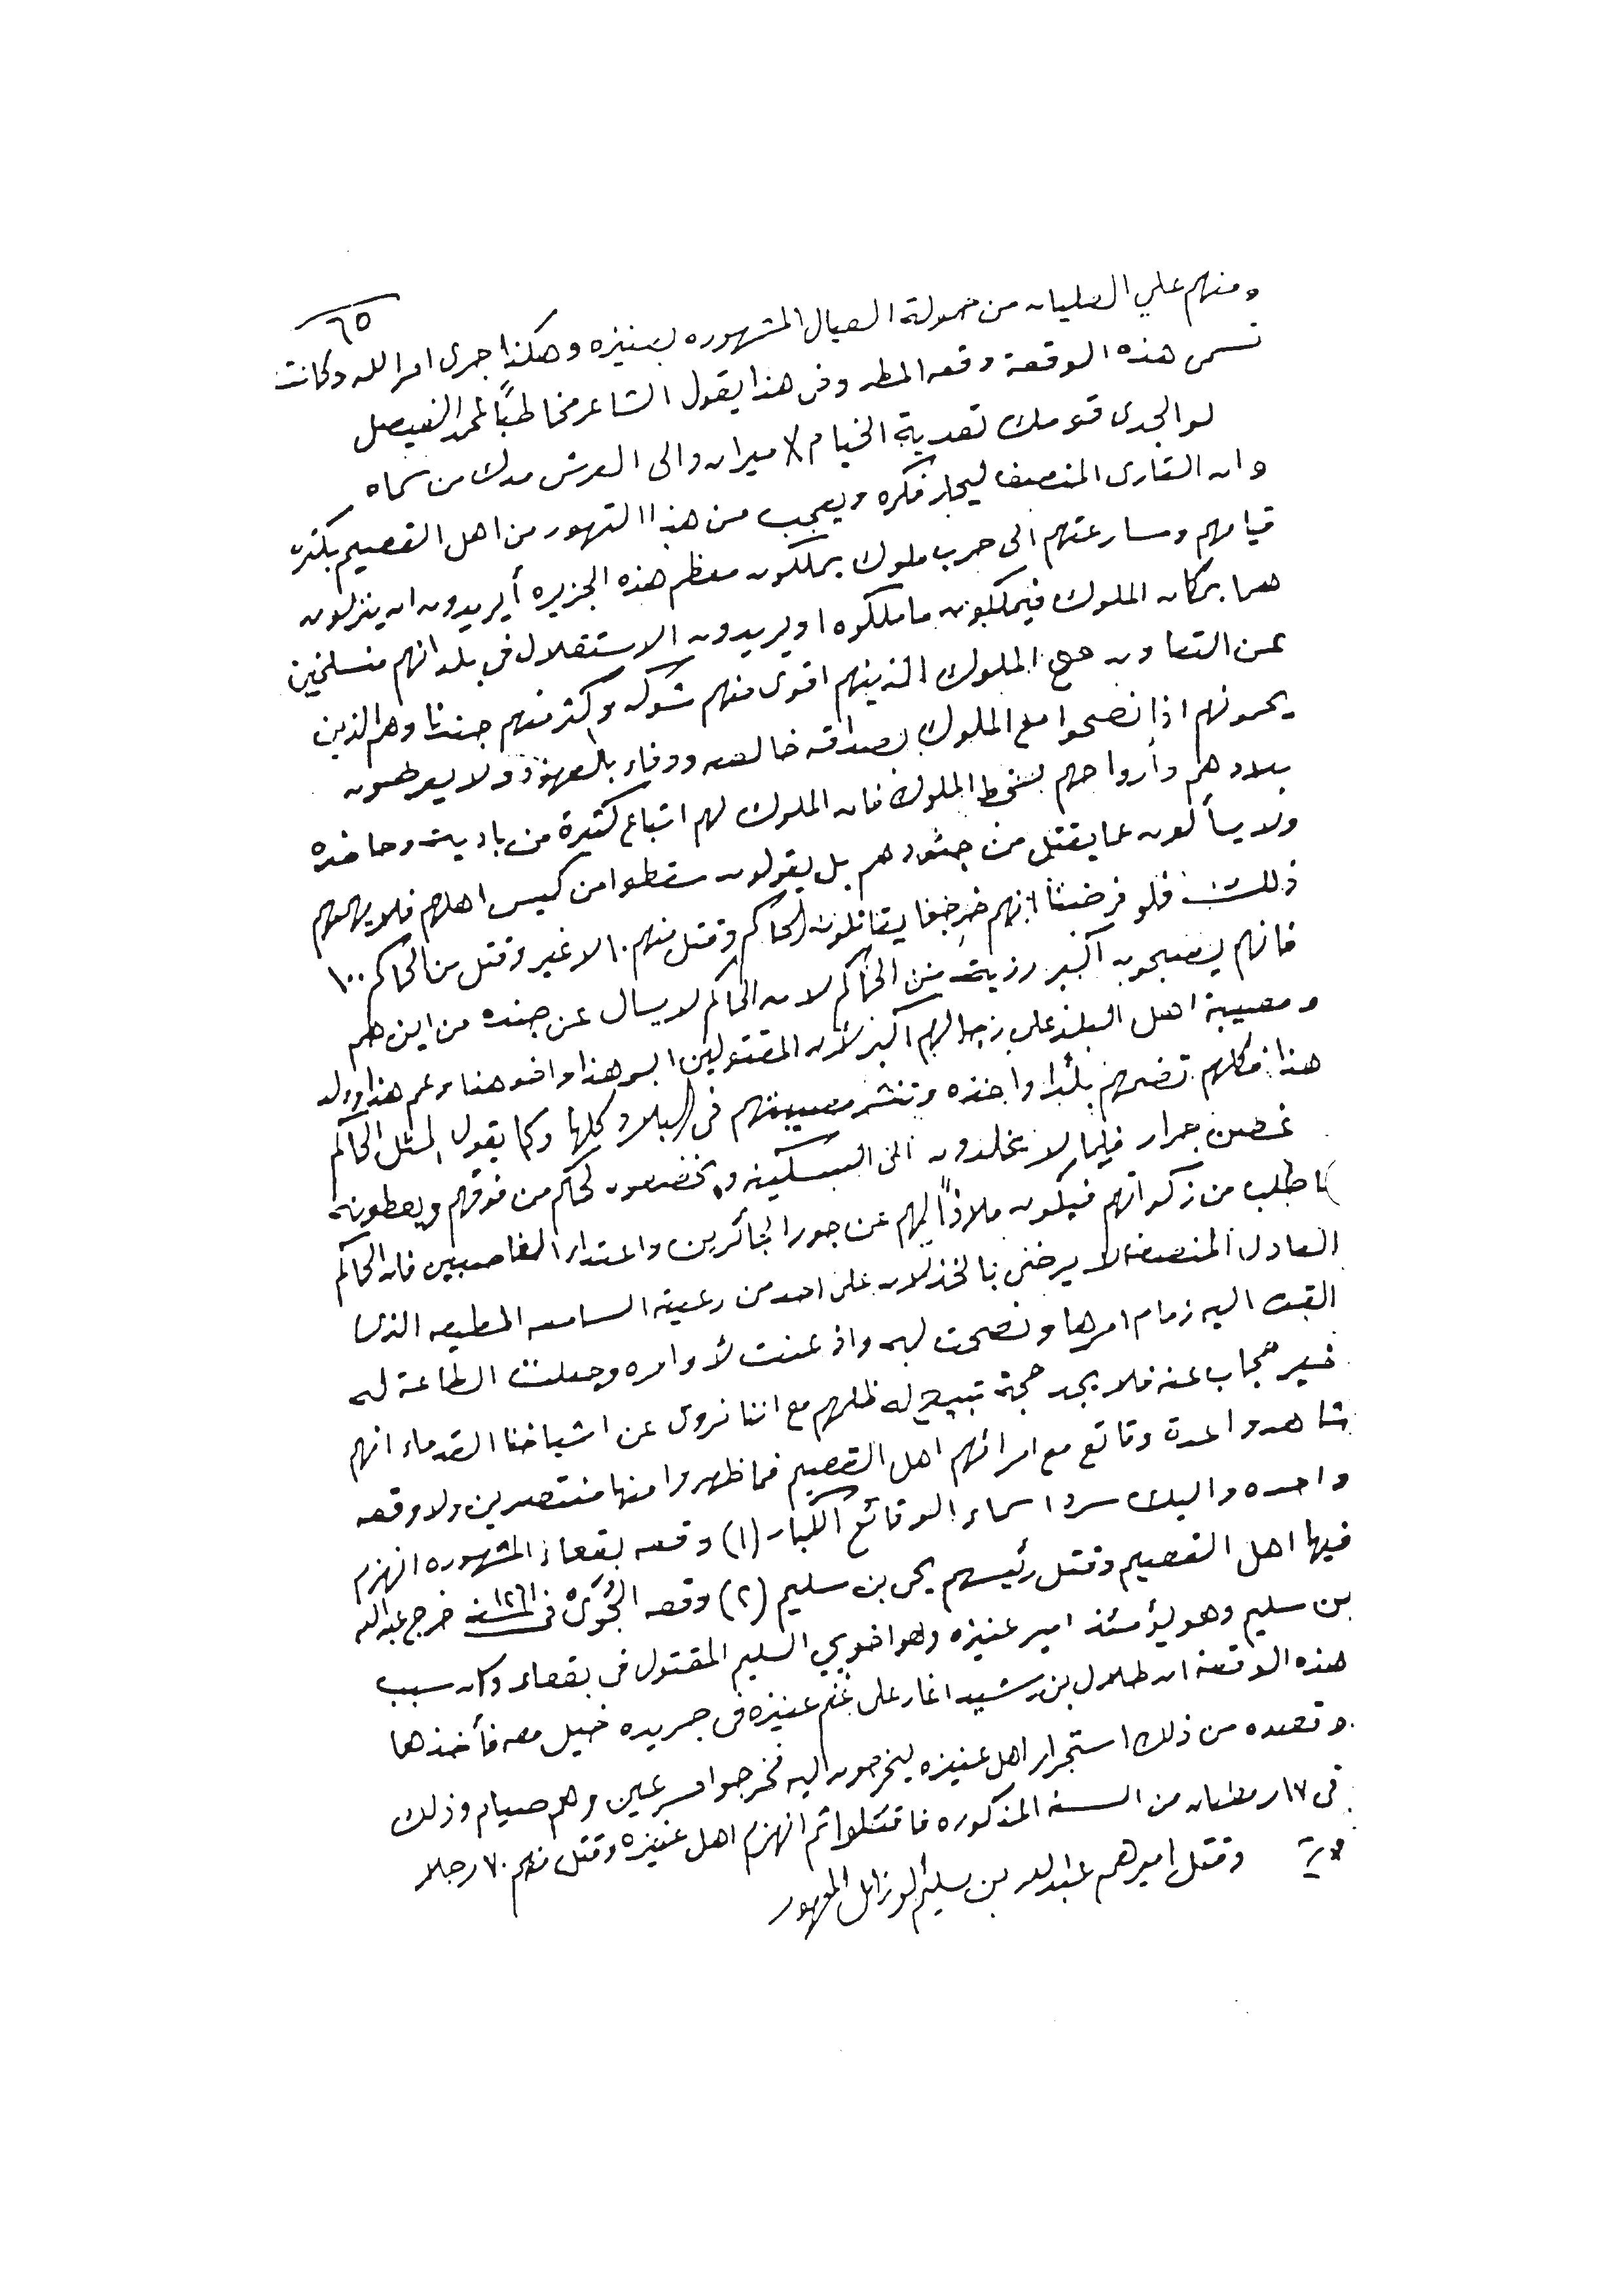 ٦٥
ومنهم علي العليان من حمولة العيال المشهوره بعنيزه وهكذا جرى امر الله وكانت
تسمى هذه الوقعة وقعه المطر وفى هذا يقول الشاعر مخاطبًا لمحمد الفيصل
لوالجدى قومك تعدية الخيام / لا ميران والى العرش مدك من سماه
وان القارى المنصف ليحار فكره ويعجب من هذا التهور من اهل القصيم بكثرة
قيامهم ومسارعتهم الى حرب ملوك يملكون معظم هذه الجزيره أيريدون ان ينزلون
هما بمكان الملوك فيملكون ما ملكوه او يريدون الاستقلال فى بلدانهم منسلخين
عن التعاون مع الملوك الذينهم اقوى منهم شوكه واكثر منهم جندا وهم الذين
يحمونهم اذا نصحوا مع الملوك بصداقه خالصه ووفاء بالعهود ولا يعرضون
بلادهم وأرواحهم لسخط الملوك فان الملوك لهم اتباع كثيرة من باديه وحاضره
ولا يسألون عما يقتل من جنودهم بل يقولون سقطوا من كيس اهلهم فلا يهمهم
ذلك فلو فرضنا انهم خرجوا يقاتلون الحاكم وقتل منهم ١٠ لا غير وقتل من الحاكم ١٠٠
فانهم يصبحون اكبر رزية من الحاكم لان الحاكم لا يسال عن جنده من اين هم
ومصيبة اهل البلد على رجالهم اكبر لان المقتولين ابو هذا واخو هذا وعم هذا وولد
هذا فكلهم تضمهم بلد واحده وتنشر مصيبتهم فى البلاد كلها وكما يقول المثل الحاكم
غصن جرار فلما لا يخلدون الى السكينه ويخضعون لحاكم من فوقهم ويعطونه
ما طلب من زكواتهم فيكون ملاذًا لهم عن جور الجائرين واعتداء الغاصبين فان الحاكم
العادل المنصف لا يرضى بالخذلان على احد من رعيته السامعه المطيعه الذى
القت اليه زمام امرها ونصحت له واذعنت لأوامره وجعلت الطاعة له
غير مجاب عنه فلا يجد حجة تبيح له ظلمهم مع اننا نروى عن اشياخنا القدماء انهم
شاهدوا عدة وقائع مع امرائهم اهل القصيم فما ظهروا منها منتصرين ولا وقعه
واحده واليك سرد اسماء الوقائع الكبار (١) وقعه بقعاء المشهوره انهزم
فيها اهل القصيم وقتل رئيسهم يحى بن سليم (٢) وقعه الجوى فى ١٢٦١ سنه خرج عبدالله
بن سليم وهو يؤمئذ امير عنيزه وهو اخو يحي السليم المقتول فى بقعاء وكان سبب
هذه الوقعة ان طلال بن رشيد اغار على غنم عنيزه فى جريده خيل معه فأخذها
وقصده من ذلك استجرار اهل عنيزه ليخرجون اليه فخرجوا مسرعين وهم صيام وذلك
فى ١٧ رمضان من السنه المذكوره فاقتتلوا ثم انهزم اهل عنيزه وقتل منهم ٧٠ رجلا
وقتل اميرهم عبدالله بن سليم